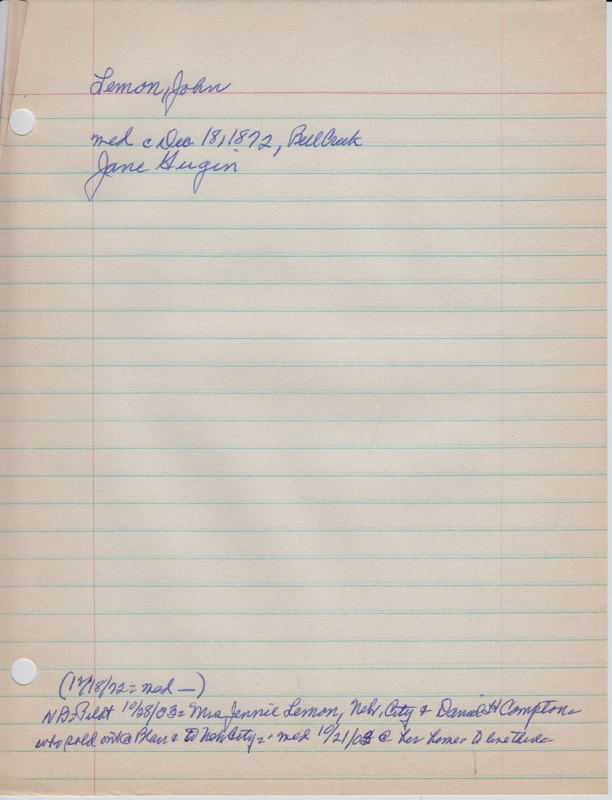 Lemon, John
med c Dec 18, 1872, Bell Creek
Jane Hugin
(12/18/72 = med —)
NB = Pilot 10/28/03 = Mrs Jennie Lemon, Nebr. City & Daniel H Compton =
who sold out @ Blair & to Neb City = med 10/21/03 @ her home = to live there =